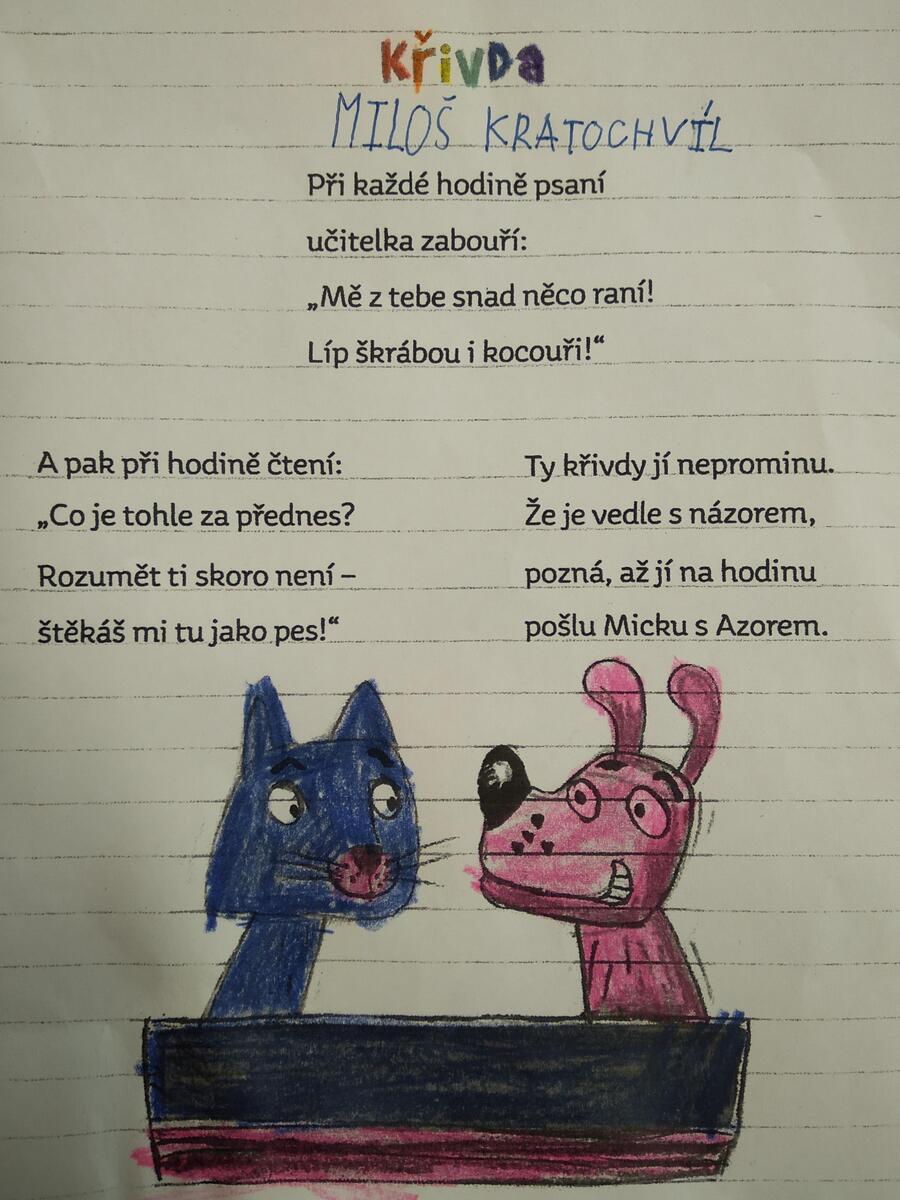 Křivda
MILOŠ KRATOCHVÍL
Při každé hodině psaní
učitelka zabouří:
„Mě z tebe snad něco raní!
Líp škrábou i kocouři!“
A pak při hodině čtení:
„Co je tohle za přednes?
Rozumět ti skoro není –
štěkáš mi tu jako pes!“
Ty křivdy jí neprominu.
Že je vedle s názorem,
pozná, až jí na hodinu
pošlu Micku s Azorem.